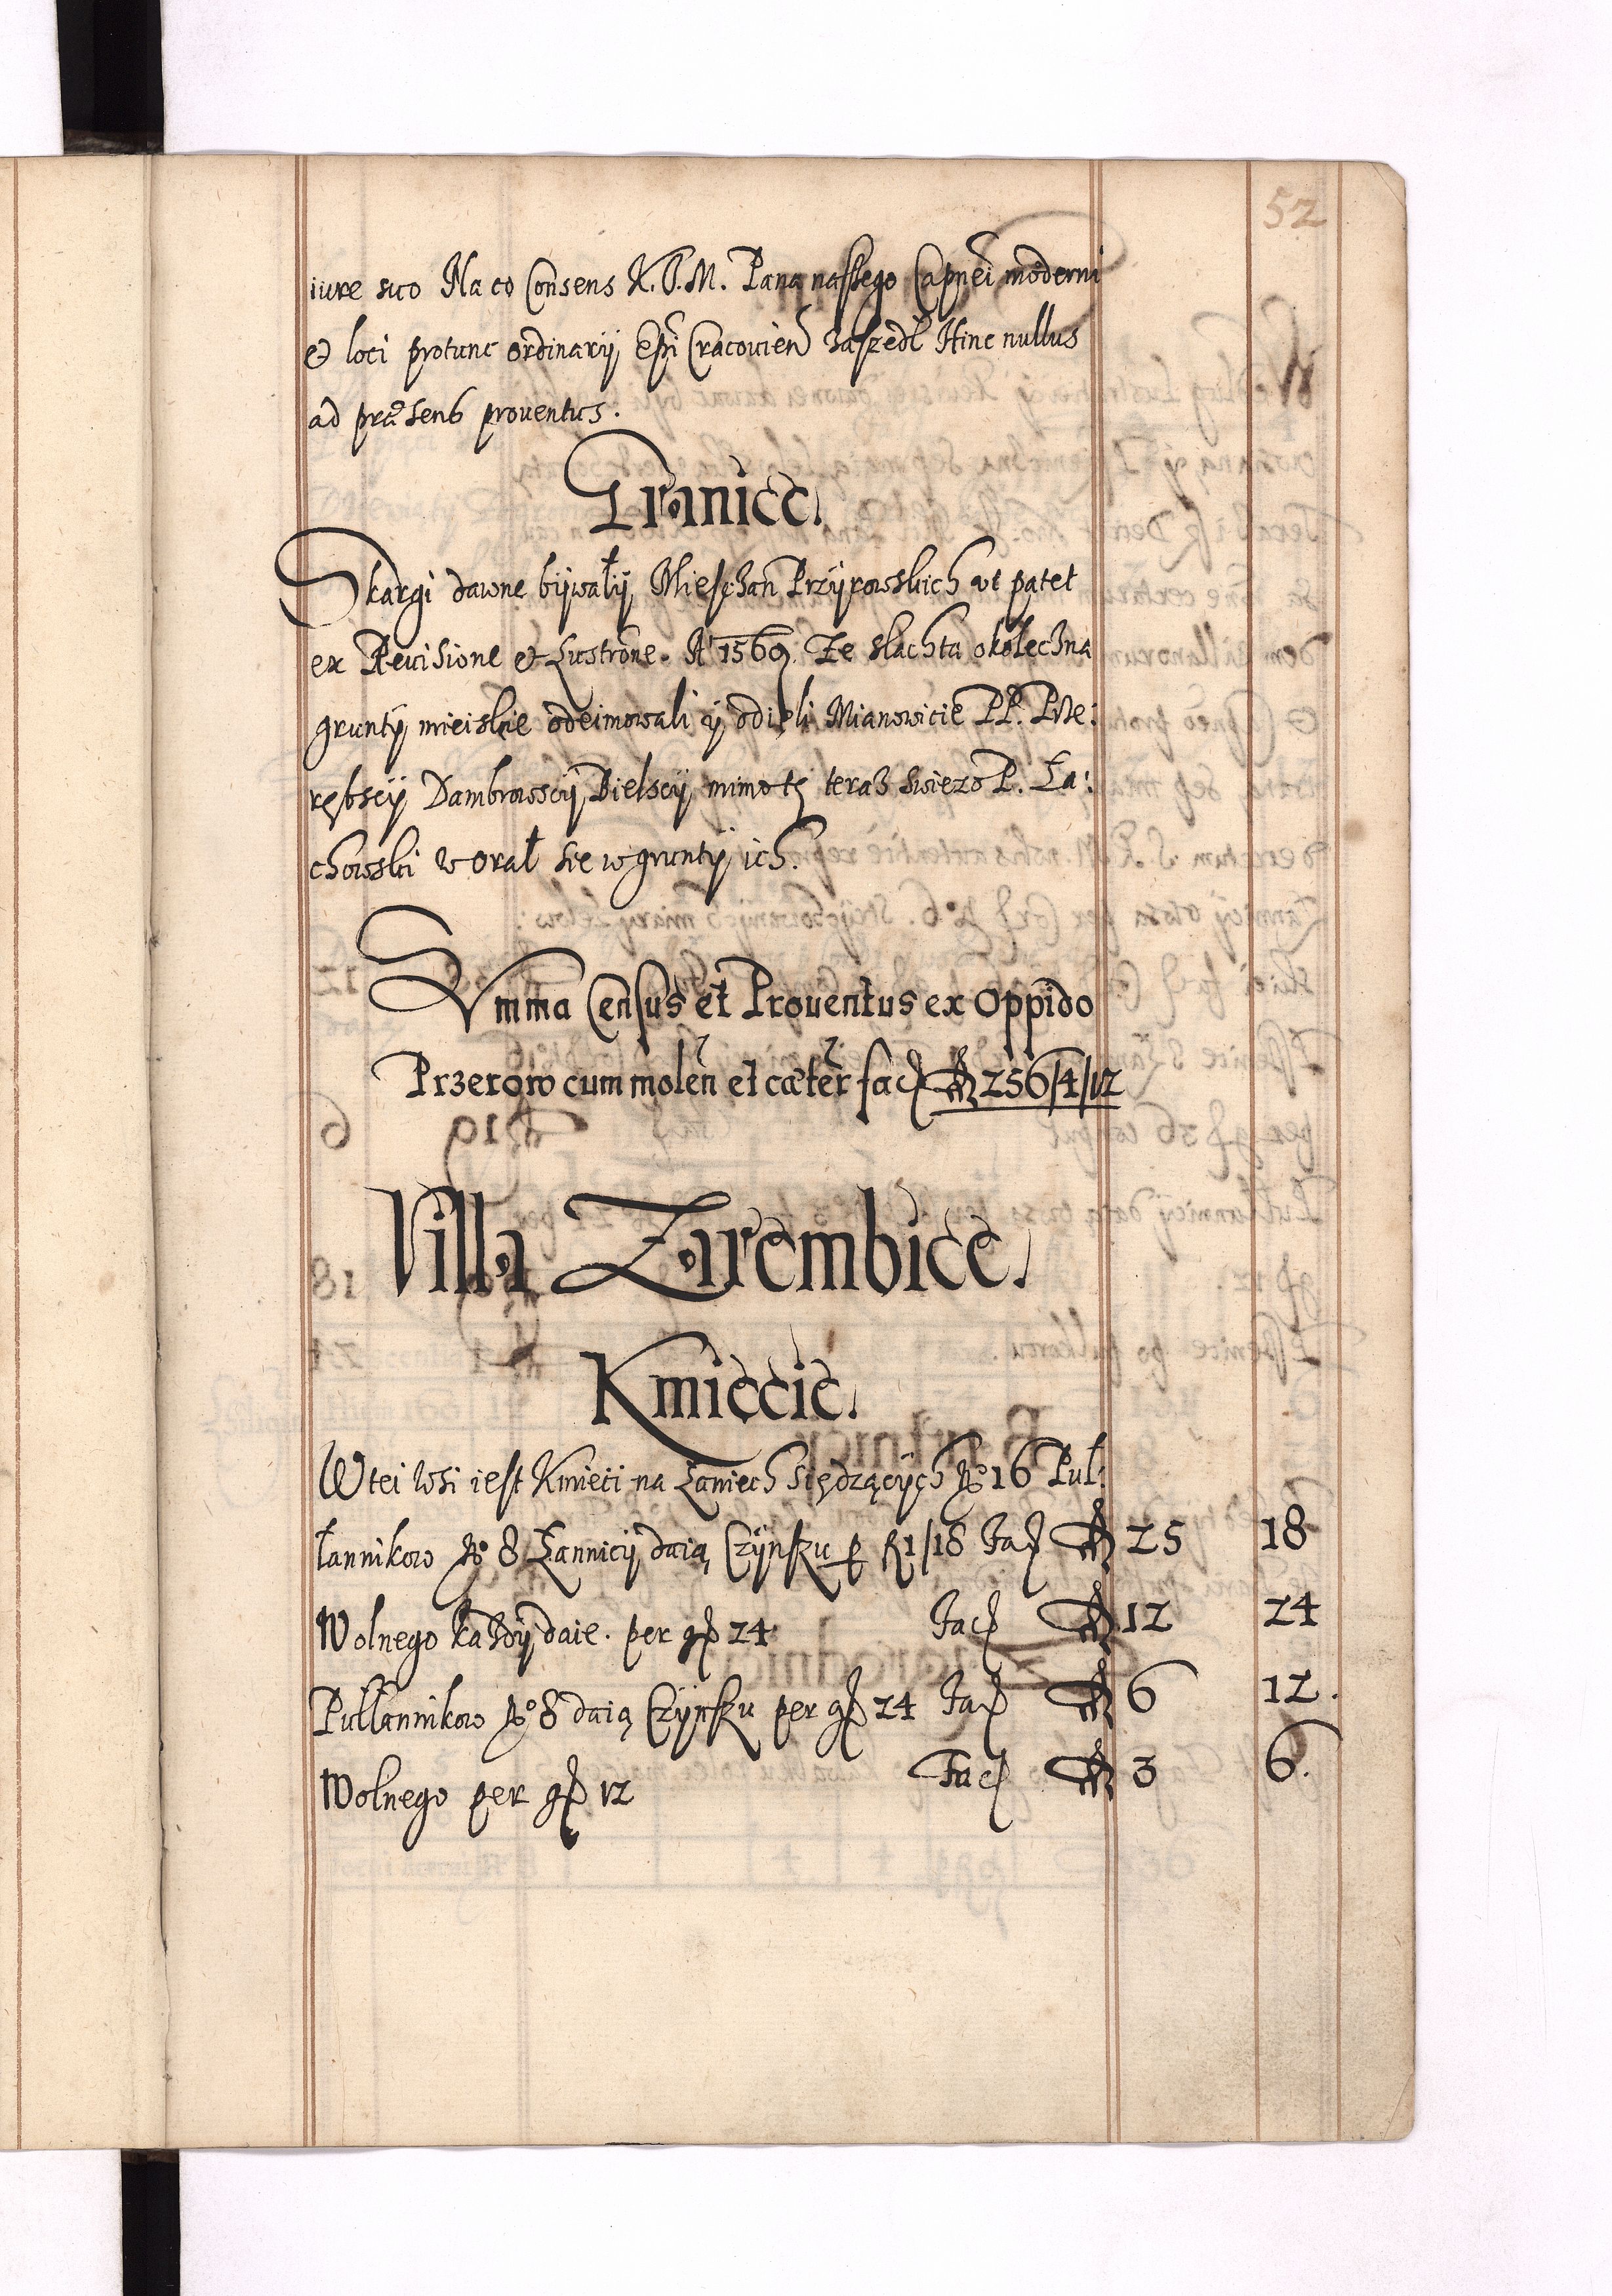 52
iure suo Na co Consens K. J. M. Pana naszego Capnei moderni
et loci protunc ordinarij Epi Cracovien zaszedł Hinc nullus
ad præsens proventus.
Granice.
Skargi dawne bÿwałÿ Mieschan Przÿrowskich ut patet
ex Revisione et Lustrone. Aº 1569. Ze slachta okolecżna
gruntÿ mieiskie odeimowali ÿ odięli Mianowicie PP.
rębscÿ Dambrowscÿ Bielscÿ mimo tẏ teraz swiezo P. Za:
chowski worał sie w gruntÿ ich.
Summa Census et Proventus ex Oppido
Przerow cum molen et cæter fac fl 256/4/12
Villa Zarembice.
Kmiecie.
W tei Wsi iest Kmieci na Łaniech siędzącÿch Nº 16 Puł:
łannikow Nº 8 Łannicÿ daią Czÿnszu p fl 1/18 Fac fl 25 18
Wolnego kazdÿ daie. per gr 24 Fac fl 12 24
Pułłannikow Nº 8 daią Czÿnszu per gr 24 Fac fl 6 12.
Wolnego per gr 12 Fac fl 3 6.